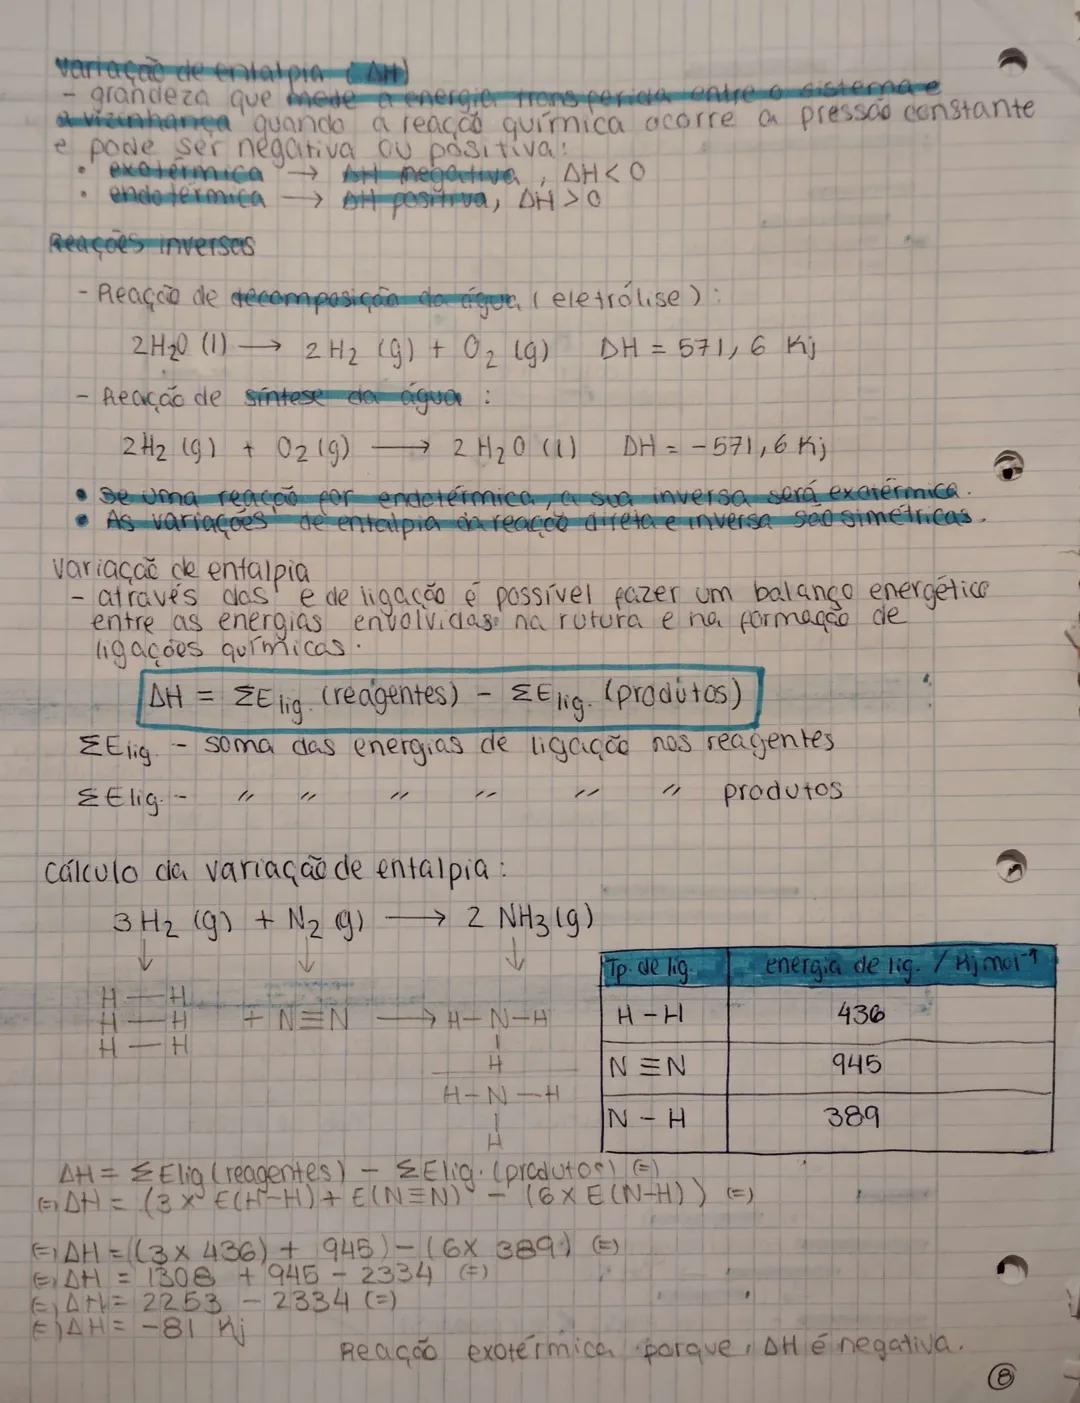 Variação de entalpia (ΔH)
- grandeza que mede a energia transferida entre o sistema e
a vizinhança quando a reação química ocorre a pressão constante
e pode ser negativa ou positiva:
• exotérmica → ΔH negativa, ΔH < 0
• endotérmica → ΔH positiva, ΔH > 0
Reações inversas
- Reação de decomposição da água (eletrólise):
2H₂O (l) → 2H₂ (g) + O₂ (g) DH = 571,6 Kj
- Reação de síntese da água:
2H₂ (g) + O₂ (g) → 2H₂O (l) DH = -571,6 Kj
• Se uma reação for endotérmica, a sua inversa será exotérmica.
• As variações de entalpia da reação direta e inversa são simétricas.
Variação de entalpia
- através das e de ligação é possível fazer um balanço energético
entre as energias envolvidas na rotura e na formação de
ligações químicas.
ΔH = ΣElig. (reagentes) - ΣElig. (produtos)
ΣElig. - soma das energias de ligação nos reagentes
ΣElig. - " " " " " " produtos
Cálculo da variação de entalpia:
3H₂ (g) + N₂ (g) → 2 NH₃ (g)
↓ ↓ ↓
H — H
H — H + N≡N → H-N-H
H — H |
H
H-N-H
|
H
Tp. de lig. energia de lig. / Kj mol⁻¹
H-H 436
N≡N 945
N-H 389
ΔH = ΣElig (reagentes) - ΣElig. (produtos) (=)
(=) ΔH = (3 x E(H-H) + E(N≡N) - (6 x E(N-H)) (=)
(=) ΔH = ((3 x 436) + 945) - (6x 389) (=)
(=) ΔH = 1308 + 945 - 2334 (=)
(=) ΔH = 2253 - 2334 (=)
(=) ΔH = -81 Kj
Reação exotérmica porque, ΔH é negativa.
8